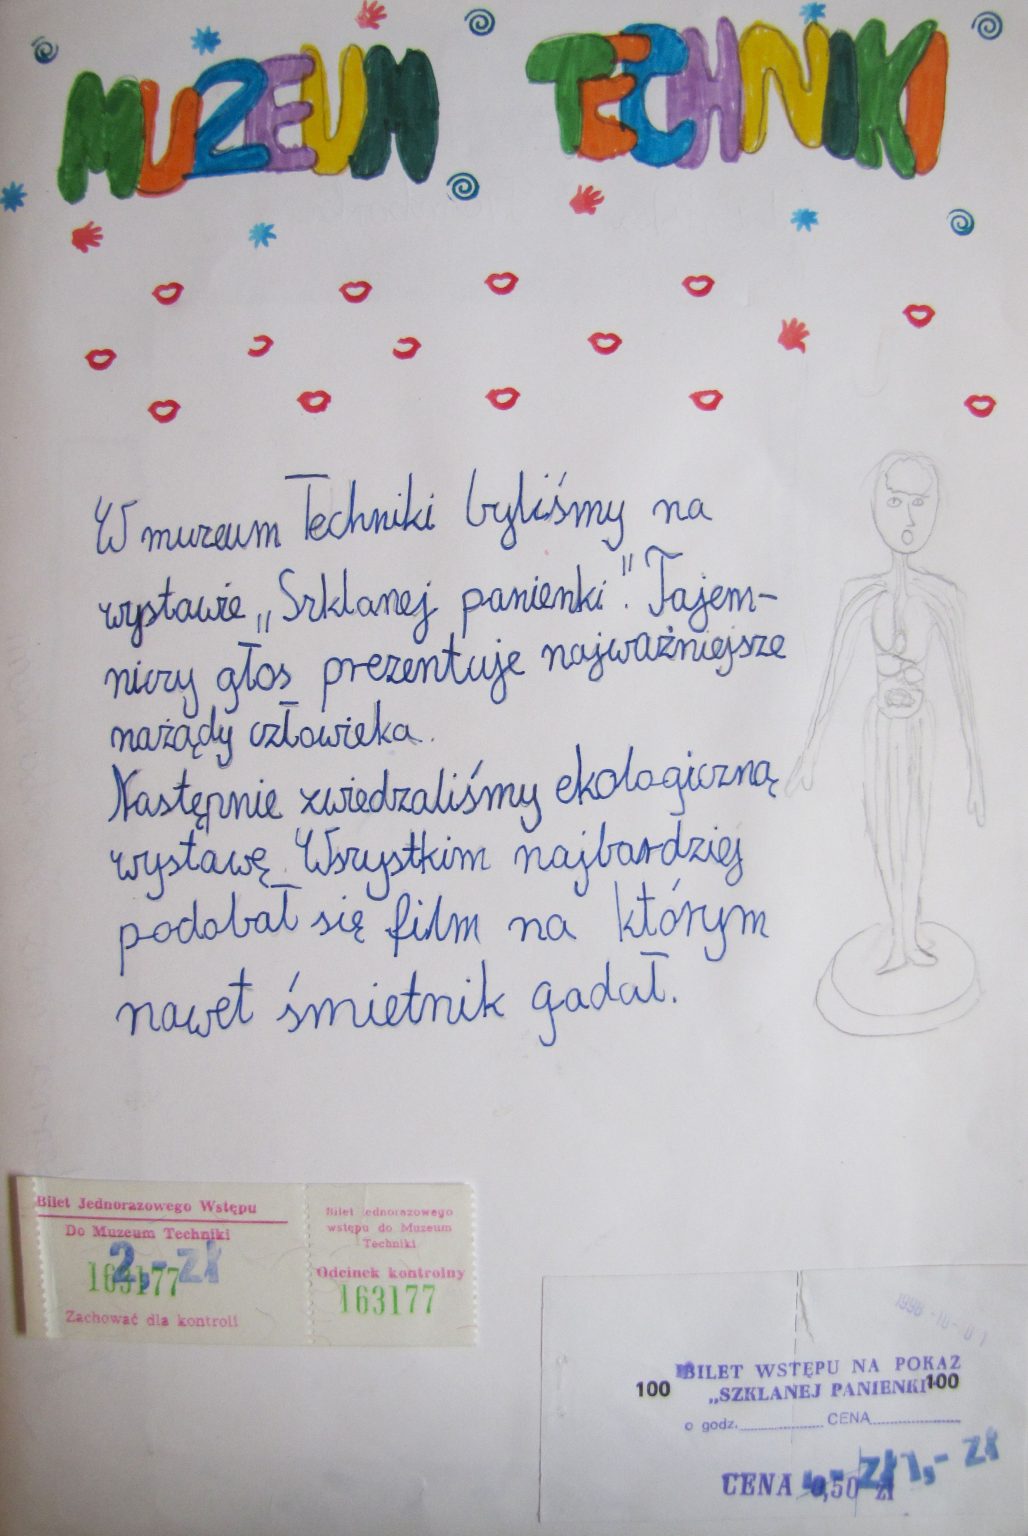 MUZEUM TECHNIKI
W muzeum Techniki byliśmy na
wystawie „Szklanej panienki". Tajem-
niczy głos prezentuje najważniejsze
nażądy człowieka.
Następnie zwiedzaliśmy ekologiczną
wystawę. Wszystkim najbardziej
podobał się film na którym
nawet śmietnik gadał.
Bilet Jednorazowego Wstępu
Do Muzeum Techniki
2,- zł
163177
Zachować dla kontroli
Bilet ednorazowego
wstępu do Muzeum
Techniki
Odcinek kontrolny
163177
BILET WSTĘPU NA POKAZ
100 „SZKLANEJ PANIENKI" 100
o godz. CENA
CENA 0,50 zł 1,- zł